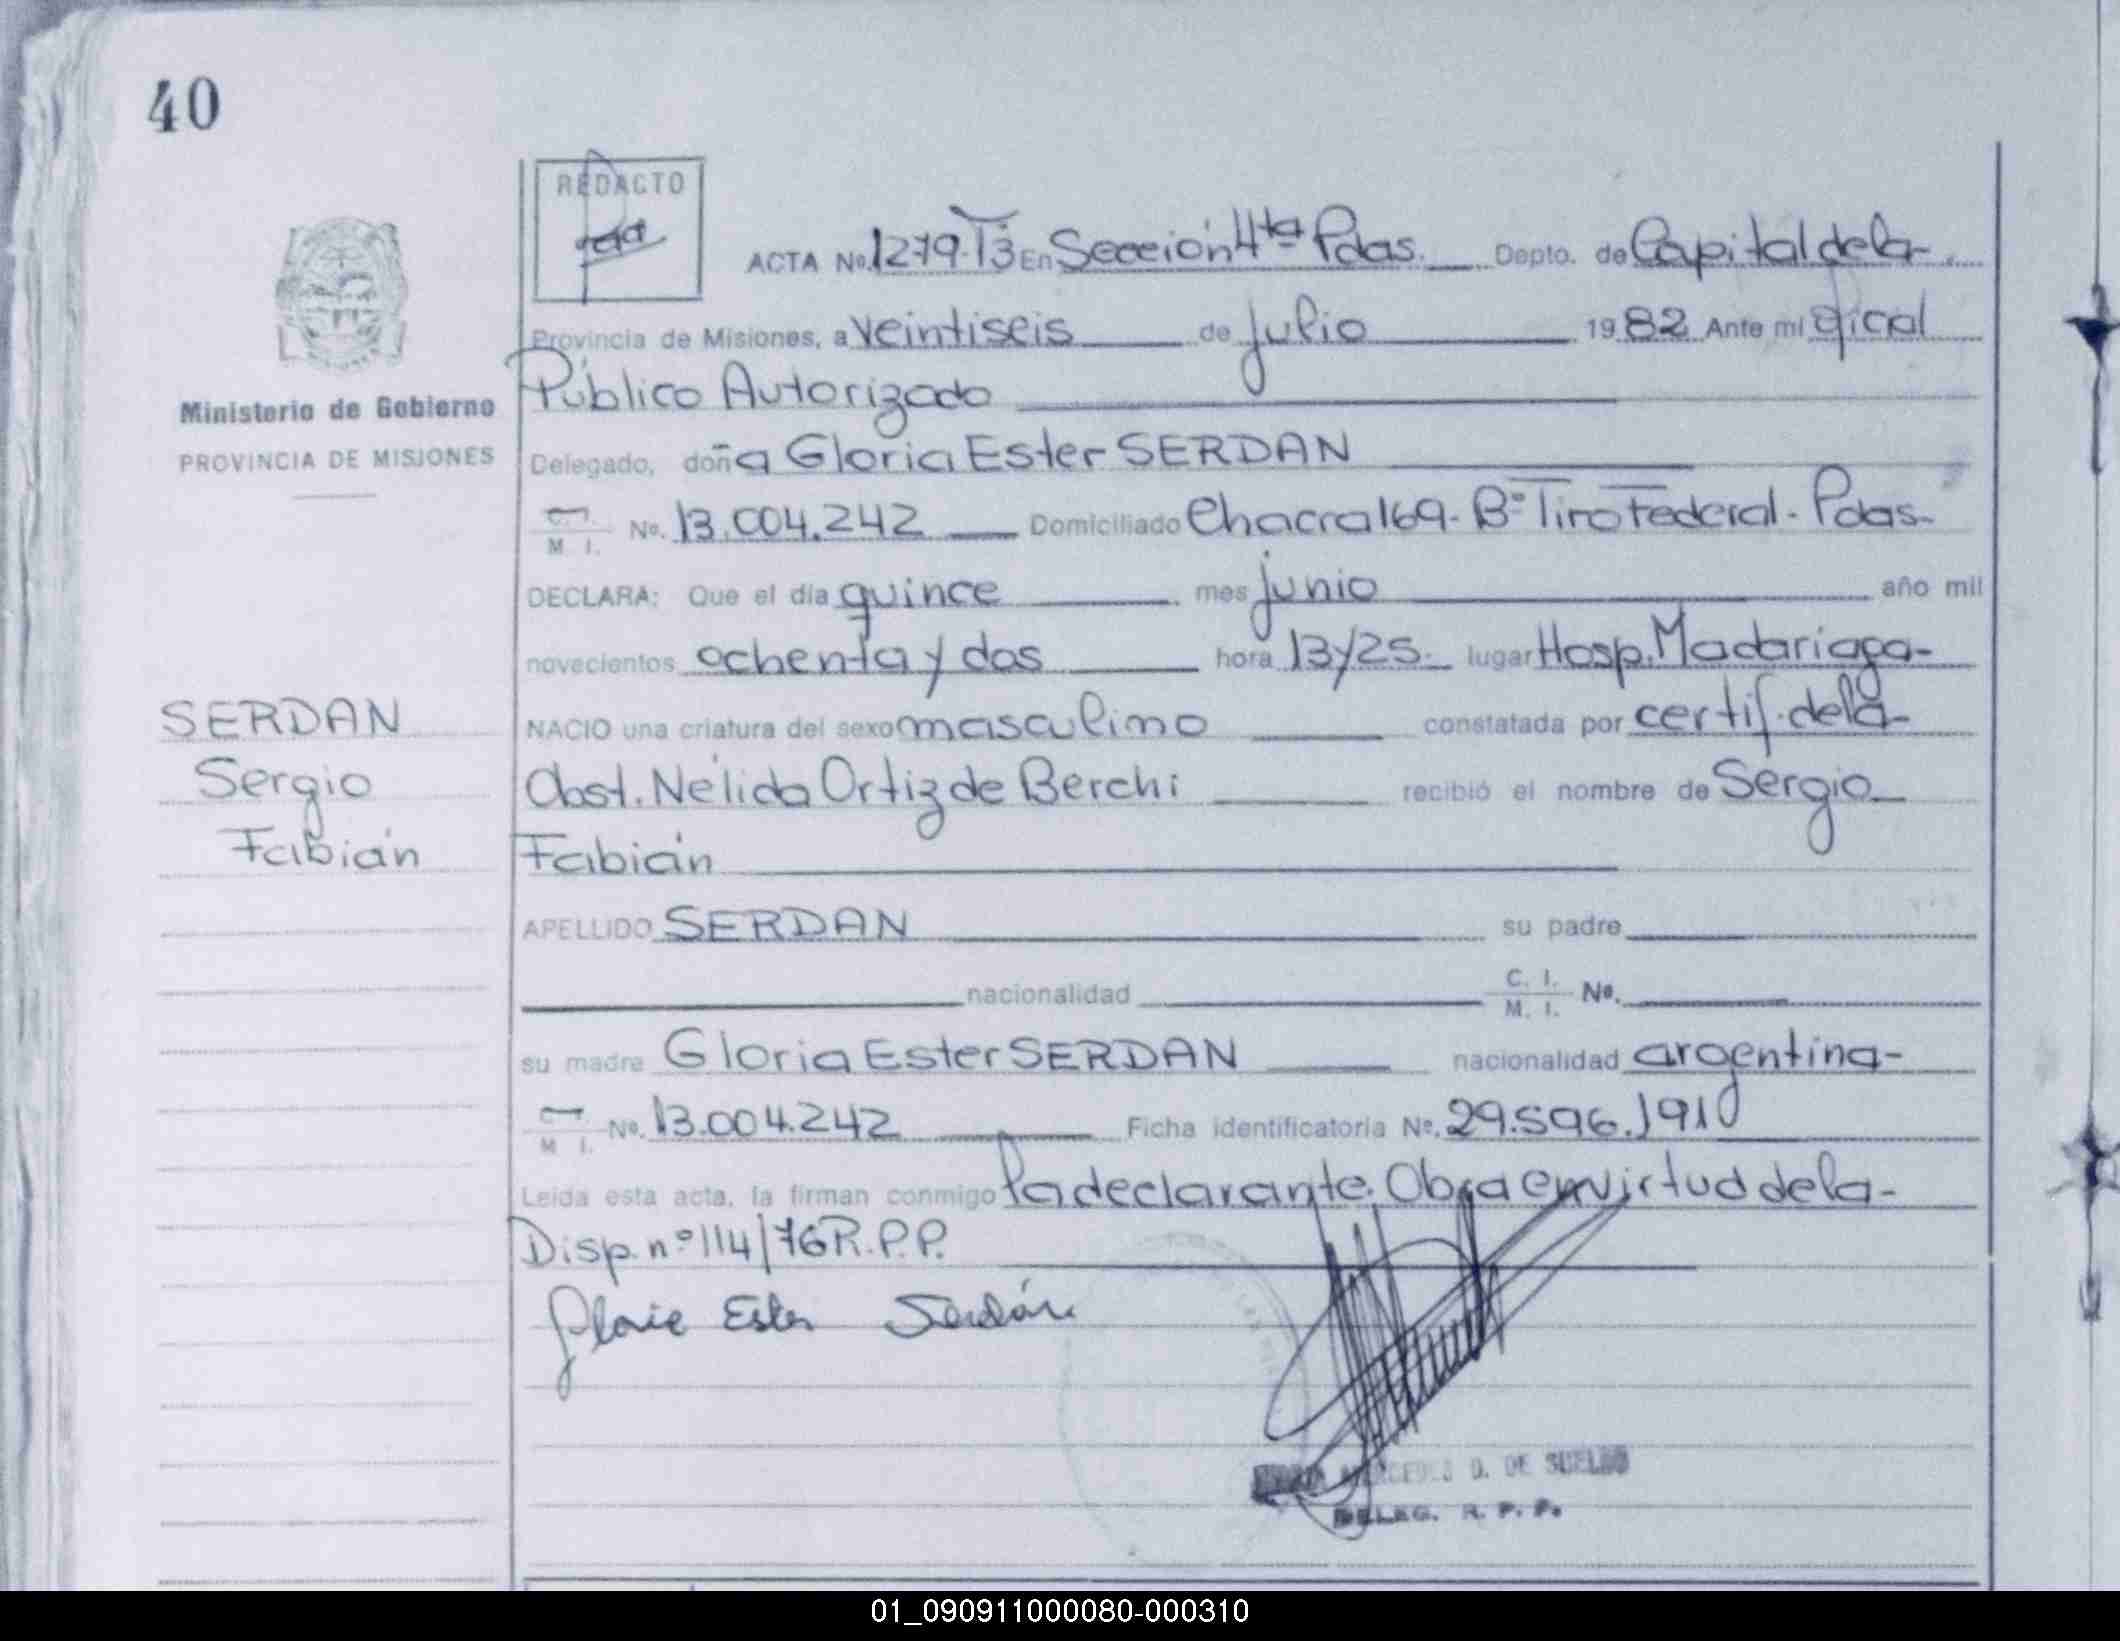 40
REDACTO
ACTA No. 1279-T3 En Sección 4ta Pdas. Depto. de Capital de la
Provincia de Misiones, a veintiseis de julio 1982 Ante mi oficial
Público Autorizado
Ministerio de Gobierno
PROVINCIA DE MISIONES
Delegado, doña Gloria Ester SERDAN
M. I. No. 13.004.242 Domiciliado Chacra 169 - Bº Tiro Federal - Pdas.
DECLARA: Que el día quince mes junio año mil
novecientos ochenta y dos hora 13 y 25 lugar Hosp. Madariaga-
SERDAN
Sergio
Fabián
NACIO una criatura del sexo masculino constatada por certif. de la-
Obst. Nélida Ortiz de Berchi recibió el nombre de Sergio
Fabián
APELLIDO SERDAN su padre
nacionalidad C. I. M. I. Nº.
su madre Gloria Ester SERDAN nacionalidad argentina-
M. I. Nº. 13.004.242 Ficha identificatoria Nº. 29.596.191
Leída esta acta, la firman conmigo la declarante. Obra en virtud de la-
Disp. nº 114/76 R.P.P.
Gloria Ester Serdán
MERCEDES D. DE SUELDO
DELEG. R. P. P.
01_090911000080-000310